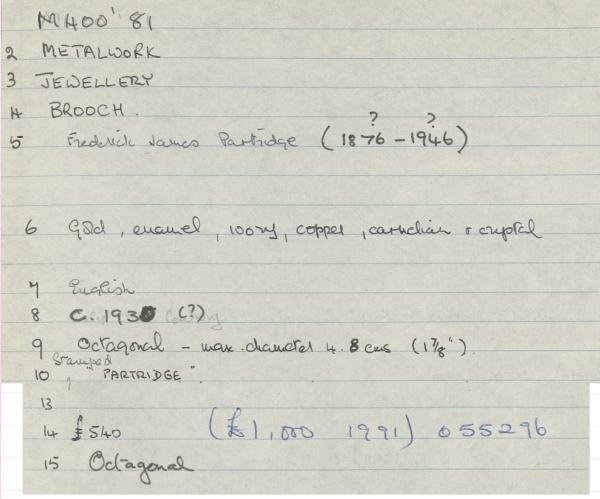 M400'81
2 METALWORK
3 JEWELLERY
4 BROOCH.
? ?
5 Frederick James Partridge (1876 - 1946)
6 Gold, enamel, ivory, copper, carnelian & crystal
7 English
8 C. 1930 (?)
9 Octagonal - max. diameter 4.8 cms (1 7/8").
Stamped
10 "PARTRIDGE".
13
14 £540 (£1,000 1991) 055296
15 Octagonal